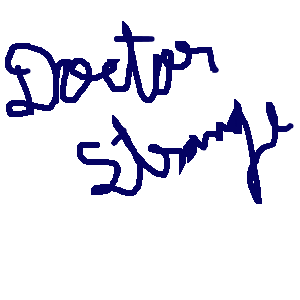 Doctor
Strange